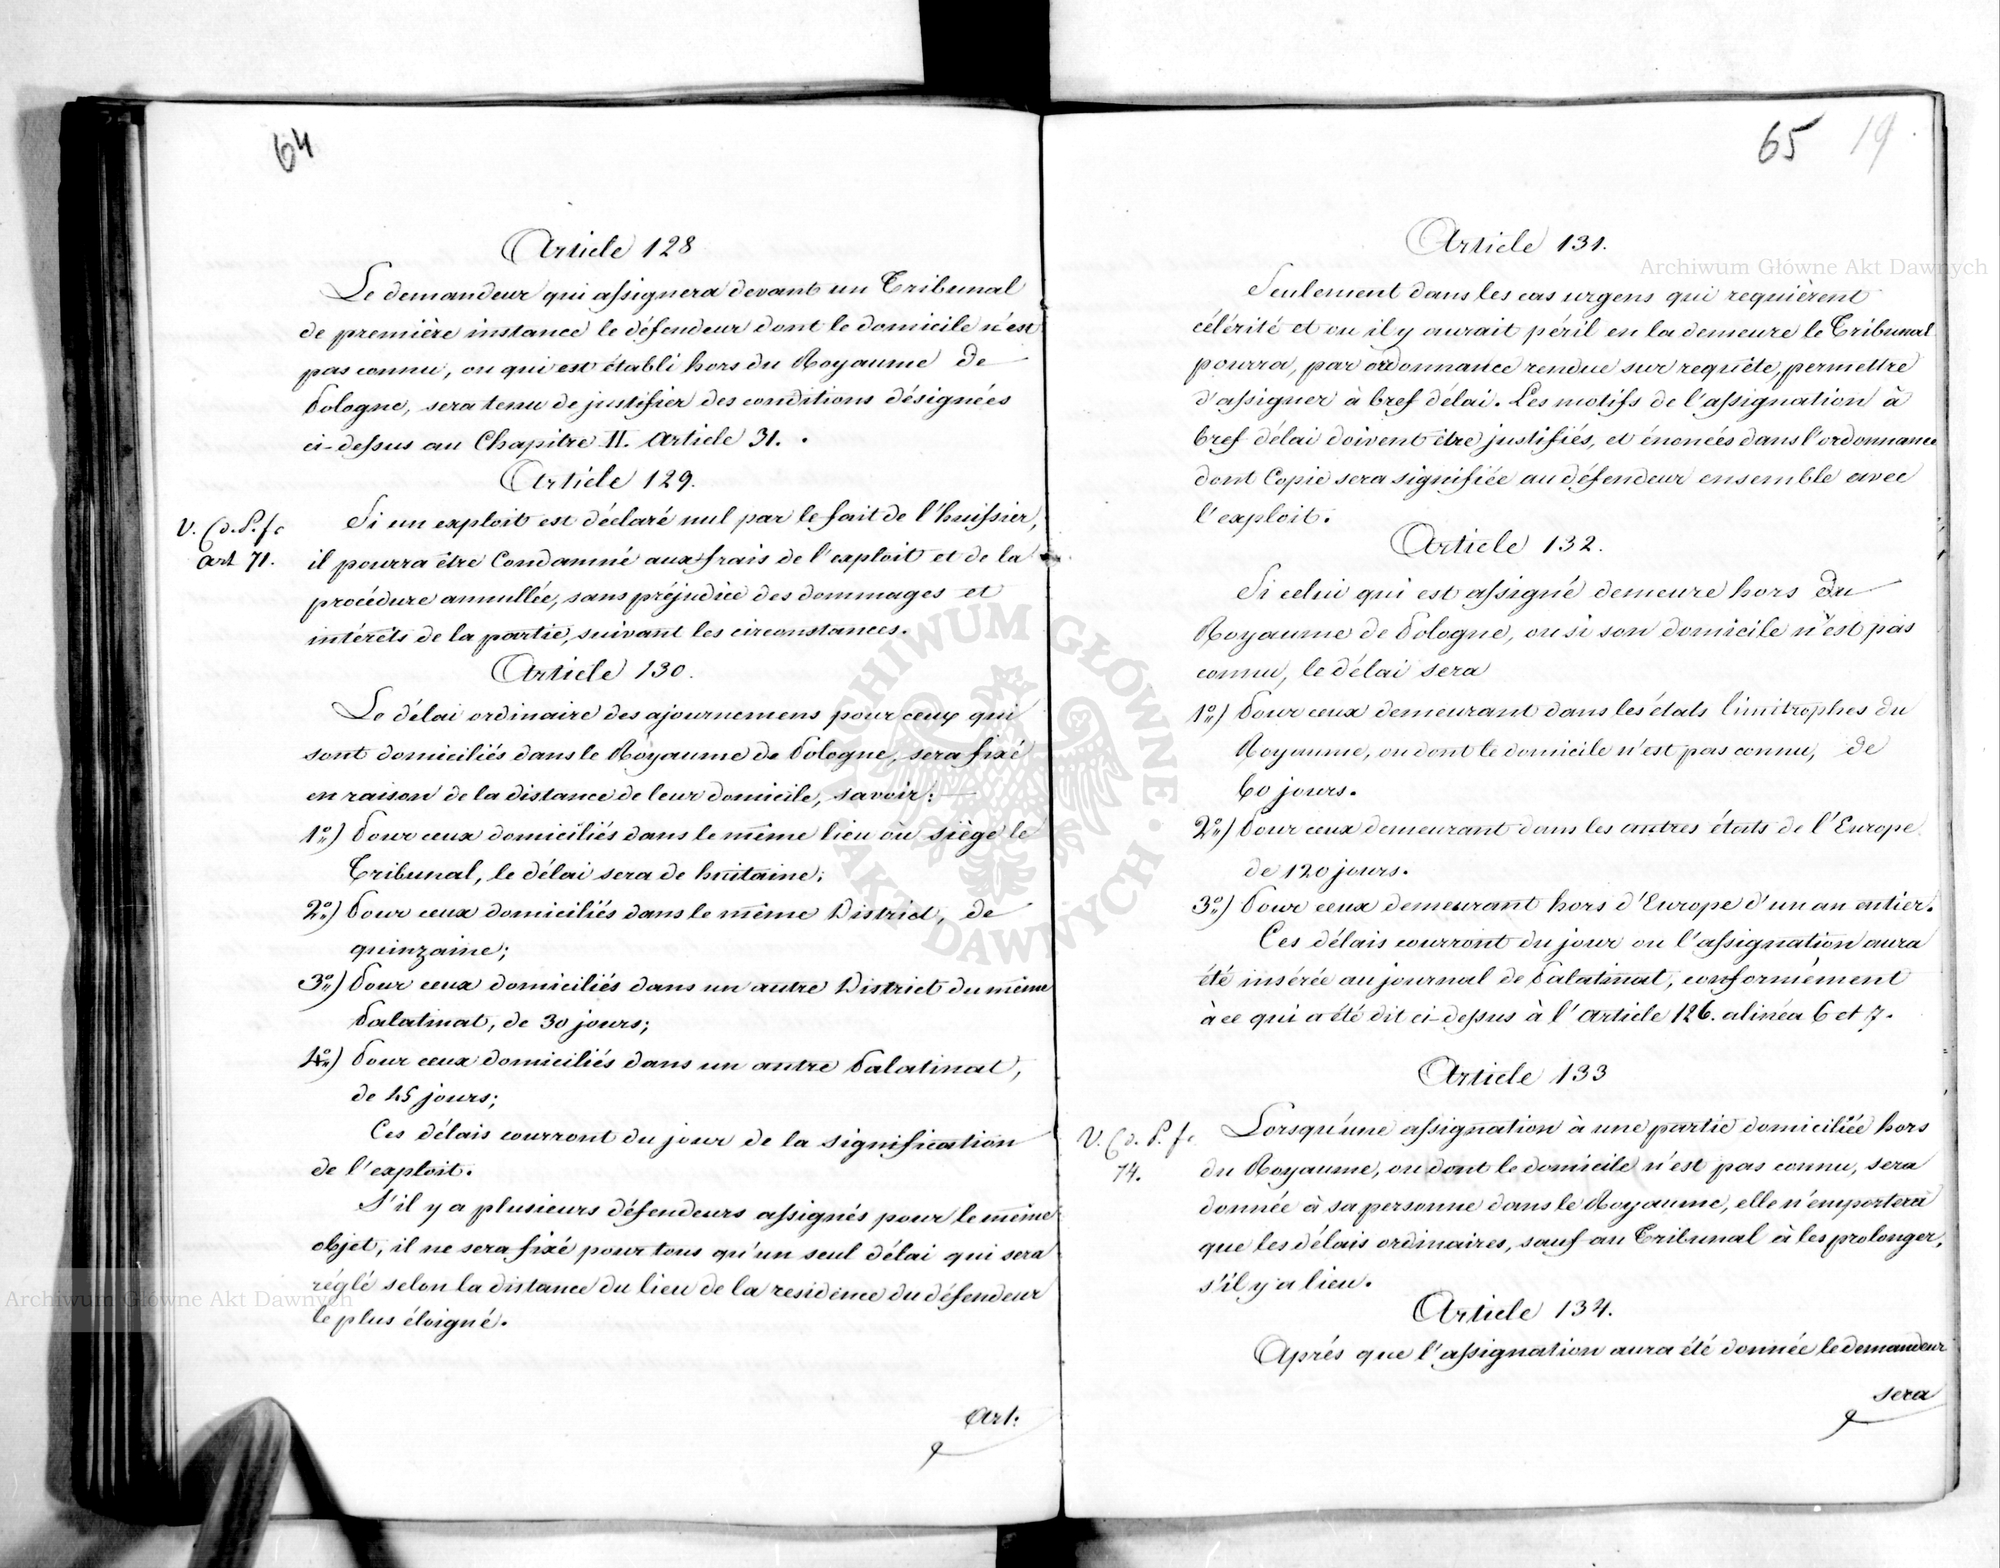 64
Article 128
Le demandeur qui assignera devant un Tribunal
de première instance le défendeur dont le domicile n'est
pas connu, ou qui est établi hors du Royaume de
Pologne, sera tenu de justifier des conditions désignées
ci-dessus au Chapitre II. Article 31.
Article 129.
V. C. d. P. fr
art 71.
Si un exploit est déclaré nul par le fait de l'huissier,
il pourra être Condamné aux frais de l'exploit et de la
procédure annullée, sans préjudice des dommages et
intérêts de la partie, suivant les circonstances.
Article 130.
Le délai ordinaire des ajournemens pour ceux qui
sont domiciliés dans le Royaume de Pologne, sera fixé
en raison de la distance de leur domicile, savoir:
1º) Pour ceux domiciliés dans le même lieu où siège le
Tribunal, le délai sera de huitaine;
2º) Pour ceux domiciliés dans le même District, de
quinzaine;
3º) Pour ceux domiciliés dans un autre District du même
Palatinat, de 30 jours;
4º) Pour ceux domiciliés dans un autre Palatinat,
de 45 jours;
Ces délais courront du jour de la signification
de l'exploit.
S'il y a plusieurs défendeurs assignés pour le même
objet, il ne sera fixé pour tous qu'un seul délai qui sera
réglé selon la distance du lieu de la residence du défendeur
le plus éloigné.
Art:
65 19
Article 131.
Seulement dans les cas urgens qui requièrent
célérité et ou il y aurait péril en la demeure le Tribunal
pourra, par ordonnance rendue sur requête, permettre
d'assigner à bref délai. Les motifs de l'assignation à
bref délai doivent être justifiés, et énoncés dans l'ordonnance
dont Copie sera signifiée au défendeur ensemble avec
l'exploit.
Article 132.
Si celui qui est assigné demeure hors du
Royaume de Pologne, ou si son domicile n'est pas
connu, le délai sera
1º) Pour ceux demeurant dans les états limitrophes du
Royaume, ou dont le domicile n'est pas connu, de
60 jours.
2º) Pour ceux demeurant dans les autres états de l'Europe
de 120 jours.
3º) Pour ceux demeurant hors d'Europe d'un an entier.
Ces délais courront du jour ou l'assignation aura
été insérée au journal de Palatinat, conformément
à ce qui a été dit ci-dessus à l'Article 126. alinéa 6 et 7.
Article 133
V. C. d. P. fr
74.
Lorsqu'une assignation à une partie domiciliée hors
du Royaume, ou dont le domicile n'est pas connu, sera
donnée à sa personne dans le Royaume, elle n'emportera
que les délais ordinaires, sauf au Tribunal à les prolonger,
s'il y a lieu.
Article 134.
Après que l'assignation aura été donnée le demandeur
sera
Archiwum Główne Akt Dawnych
Archiwum Główne Akt Dawnych
ARCHIWUM GŁÓWNE · AKT DAWNYCH ·